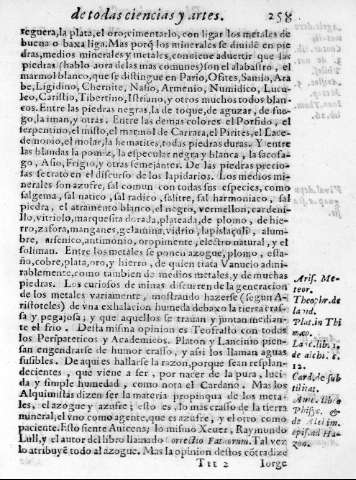 de todas ciencias y artes. 258
reguera, la plata, el oro, cimentarlo, con ligar los metales de
buena o baxa liga. Mas porq̃ los minerales se diuidẽ en pie
dras, medios minerales y metales, conuiene aduertir que las
piedras (hablo aora de las mas comunes) son el alabastro, el
marmol blanco, que se distingue en Pario, Ofites, Samio, Ara
be, Ligidino, Chernite, Nasio, Armenio, Numidico, Lucu-
leo, Caristio, Tibertino, Istriano, y otros muchos todos blan-
cos. Entre las piedras negras, la de toque, de aguzar, de fue-
go, la iman, y otras. Entre las demas colores el Porfido, el
serpentino, el misto, el marmol de Carrara, el Pirites, el Lace-
demonio, el molar, la hematites, todas piedras duras. Y entre
las blandas la pomiz, la especular negra y blanca, la sacofa-
go, Asio, Frigio, y otras semejantes. De las piedras precio-
sas se trató en el discurso de los lapidarios. Los medios mine-
rales son azufre, sal comun con todas sus especies, como
salgema, sal natico, sal radico, salitre, sal harmoniaco, sal
piedra, el atramento blanco, el negro, vermellon, carden-
illo, vitriolo, marquesita dorada, plateada, de plomo, de hie-
rro, zafora, manganes, gelamina, vidrio, lapislaçuli, alum-
bre, arsenico, antimonio, oropimente, electro natural, y el
soliman. Entre los metales se ponen azogue, plomo, esta-
ño, cobre, plata, oro, y hierro, de quien trata Vanucio admi-
rablemente, como tambien de medios metales, y de muchas
piedras. Los curiosos de minas discurren de la generacion
de los metales variamente, mostrando hazerse (segun A-
ristoteles) de vna exhalacion humeda debaxo la tierra crass-
sa y pegajosa, y que aquellos se trauan y juntan median-
te el frio. Desta misma opinion es Teofrasto con todos
los Peripateticos y Academicos. Platon y Lancinio pien-
san engendrarse de humor crasso, y assi los llaman aguas
fusibles. De aqui es hallarse la razon, porque sean resplan-
decientes, que viene a ser, por nacer de la pura, luci-
da y simple humedad, como nota el Cardano. Mas los
Alquimistas dizen ser la materia propinqua de los meta-
les, el azogue y azufre; esto es, lo mas crasso de la tierra
mineral, el vno como agente, que es azufre, y el otro como
paciente. Esto siente Auicena; lo mismo Xeuer, Raymundo
Lull, y el autor del libro llamado correctio Fatuorum. Tal vez
lo atribuyẽ todo al azogue. Mas la opinion destos cõtradize
Ttt 2 Iorge
Aris. Me-
teor.
Theophr. de
land.
Plat. in Thi
mæo.
La c. lib. 1.
de alchi. c.
12.
Card. de sub
tilitat.
Auic. lib. 6
Phisyc. &
de Alei im.
epis. ad Ha-
zon.